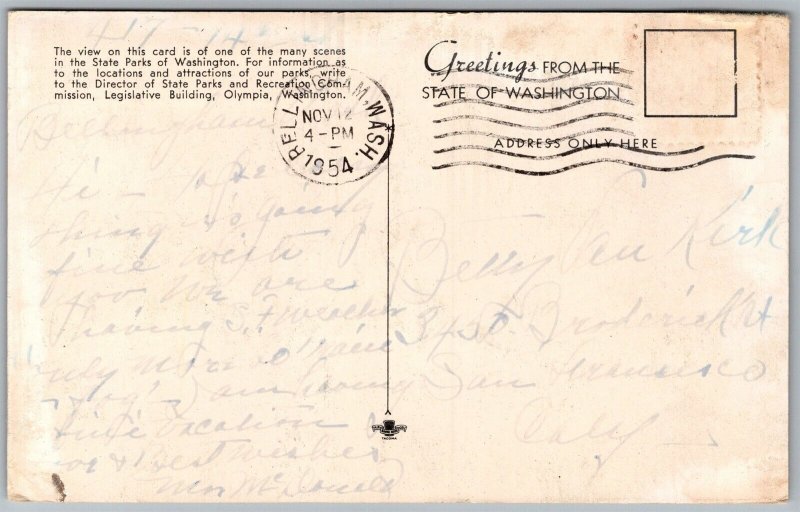 The view on this card is of one of the many scenes
in the State Parks of Washington. For information as
to the locations and attractions of our parks, write
to the Director of State Parks and Recreation Com-
mission, Legislative Building, Olympia, Washington.
BELLINGHAM, WASH.
NOV 12
4 - PM
1954
Greetings FROM THE
STATE OF WASHINGTON
ADDRESS ONLY HERE
Bellingham
Hi - hope
thing is going
fine with
you We are
having S. F weather
only more
fog I am having
fine vacation
Best wishes
Mrs McDonald
Betty Van Kirk
Broderick St
San Francisco
Calif
TACOMA